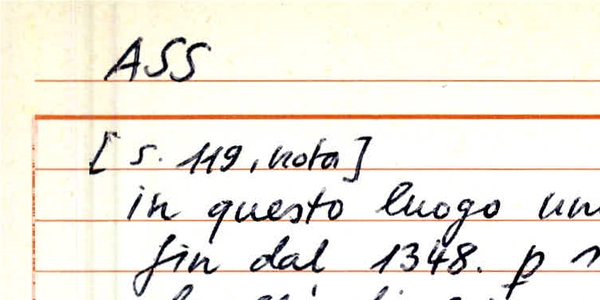 ASS
[s. 119, nota]
in questo luogo
fin dal 1348. p